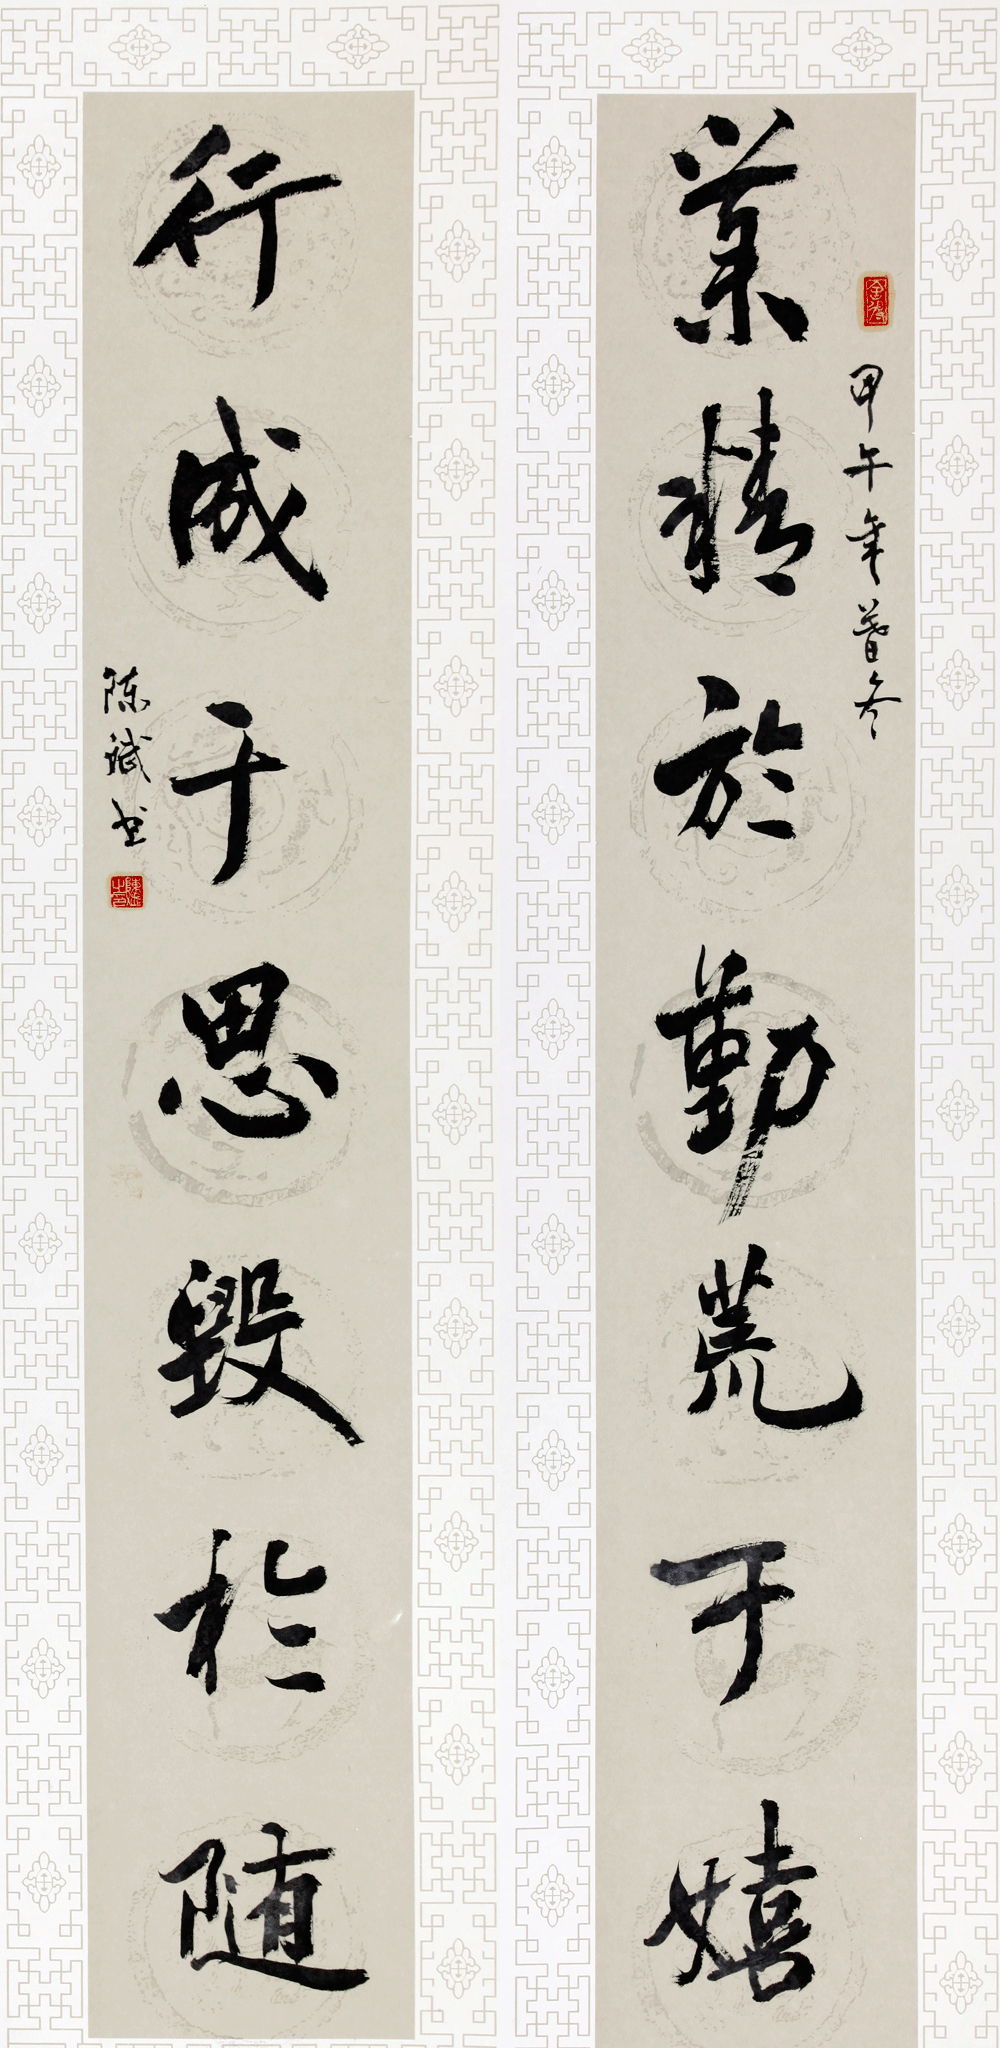 業精於勤荒于嬉
甲午年暮冬
行成于思毁於随
陈斌书